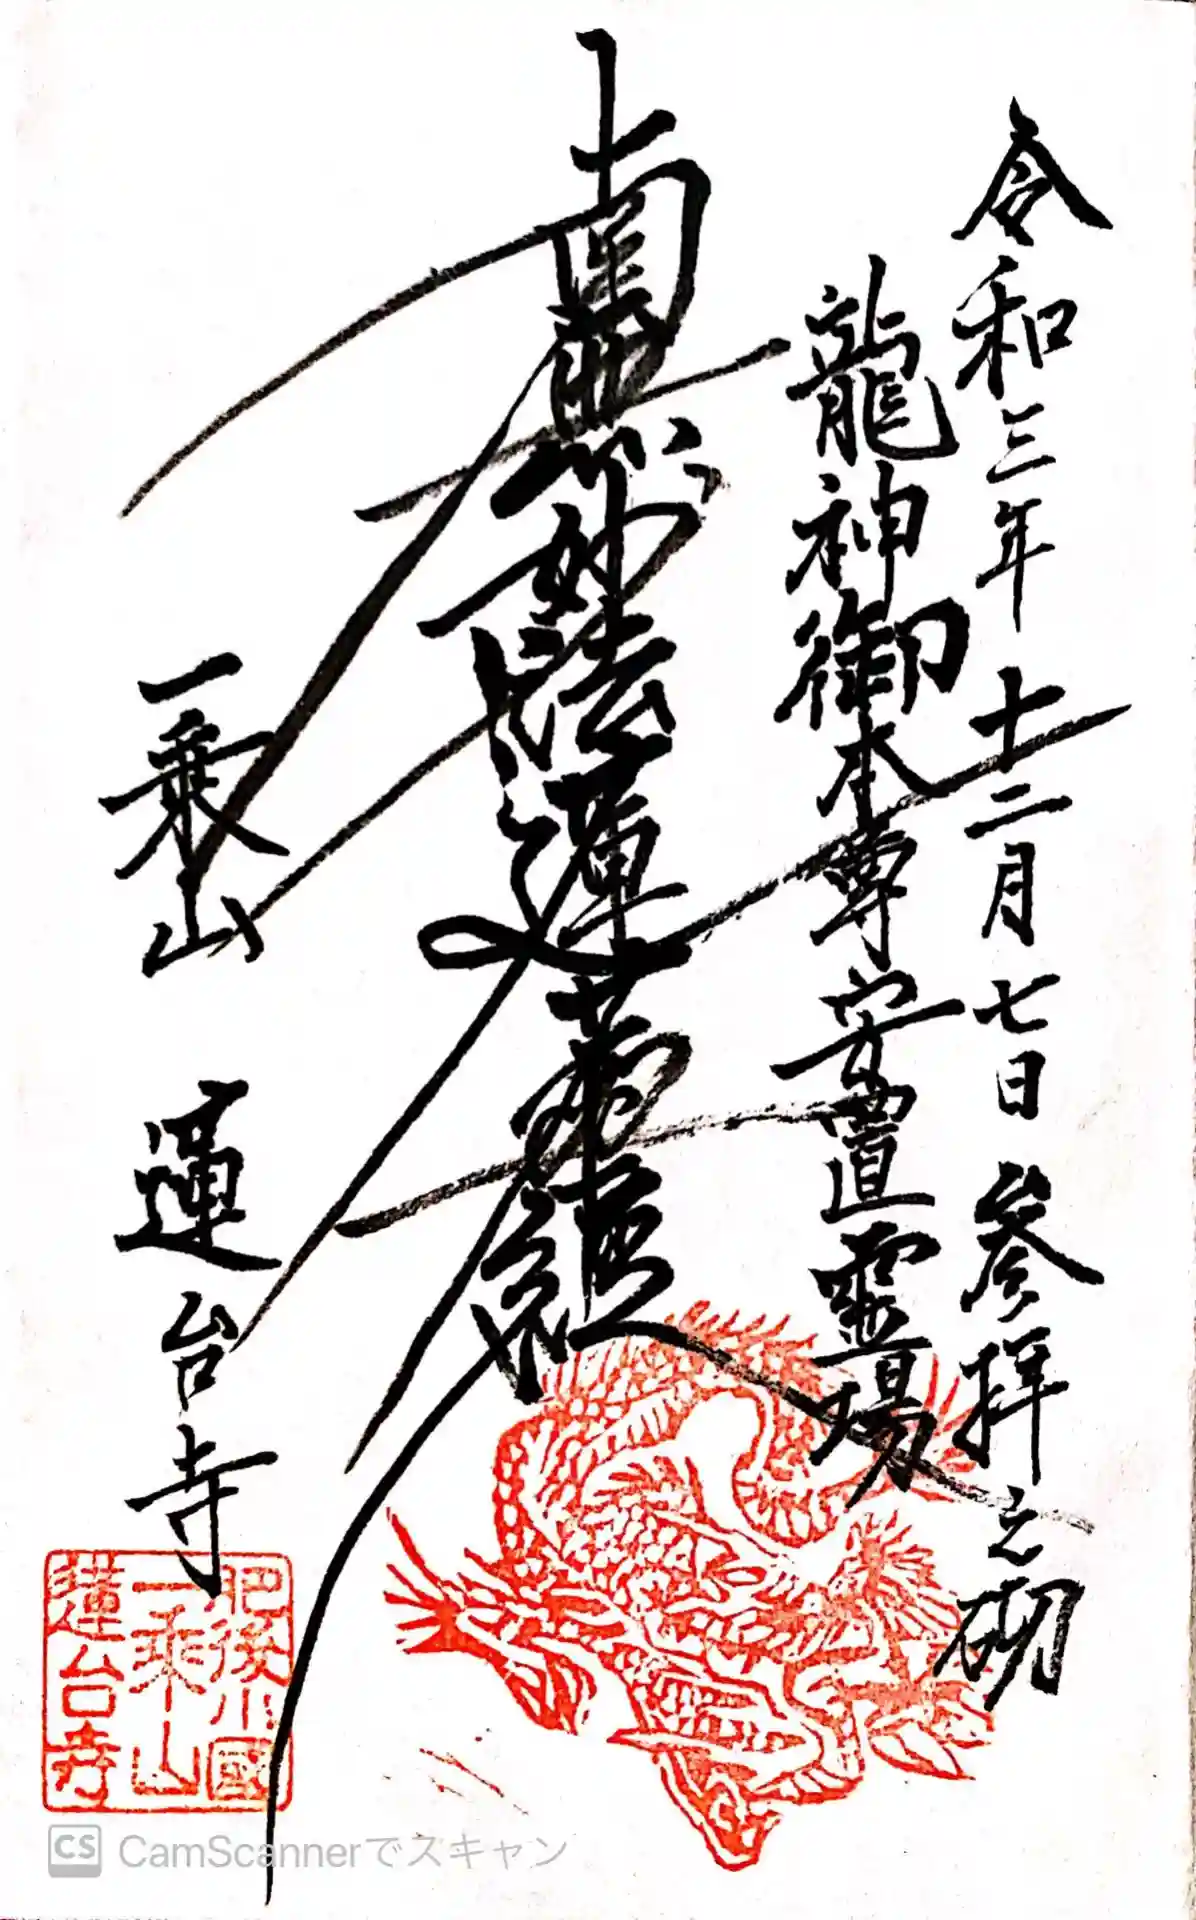 令和三年十二月七日 參拜之砌
龍神御本尊安置靈場
南無妙法蓮華經
一乘山 蓮台寺
肥後小國
一乘山
蓮台寺
CS CamScannerでスキャン